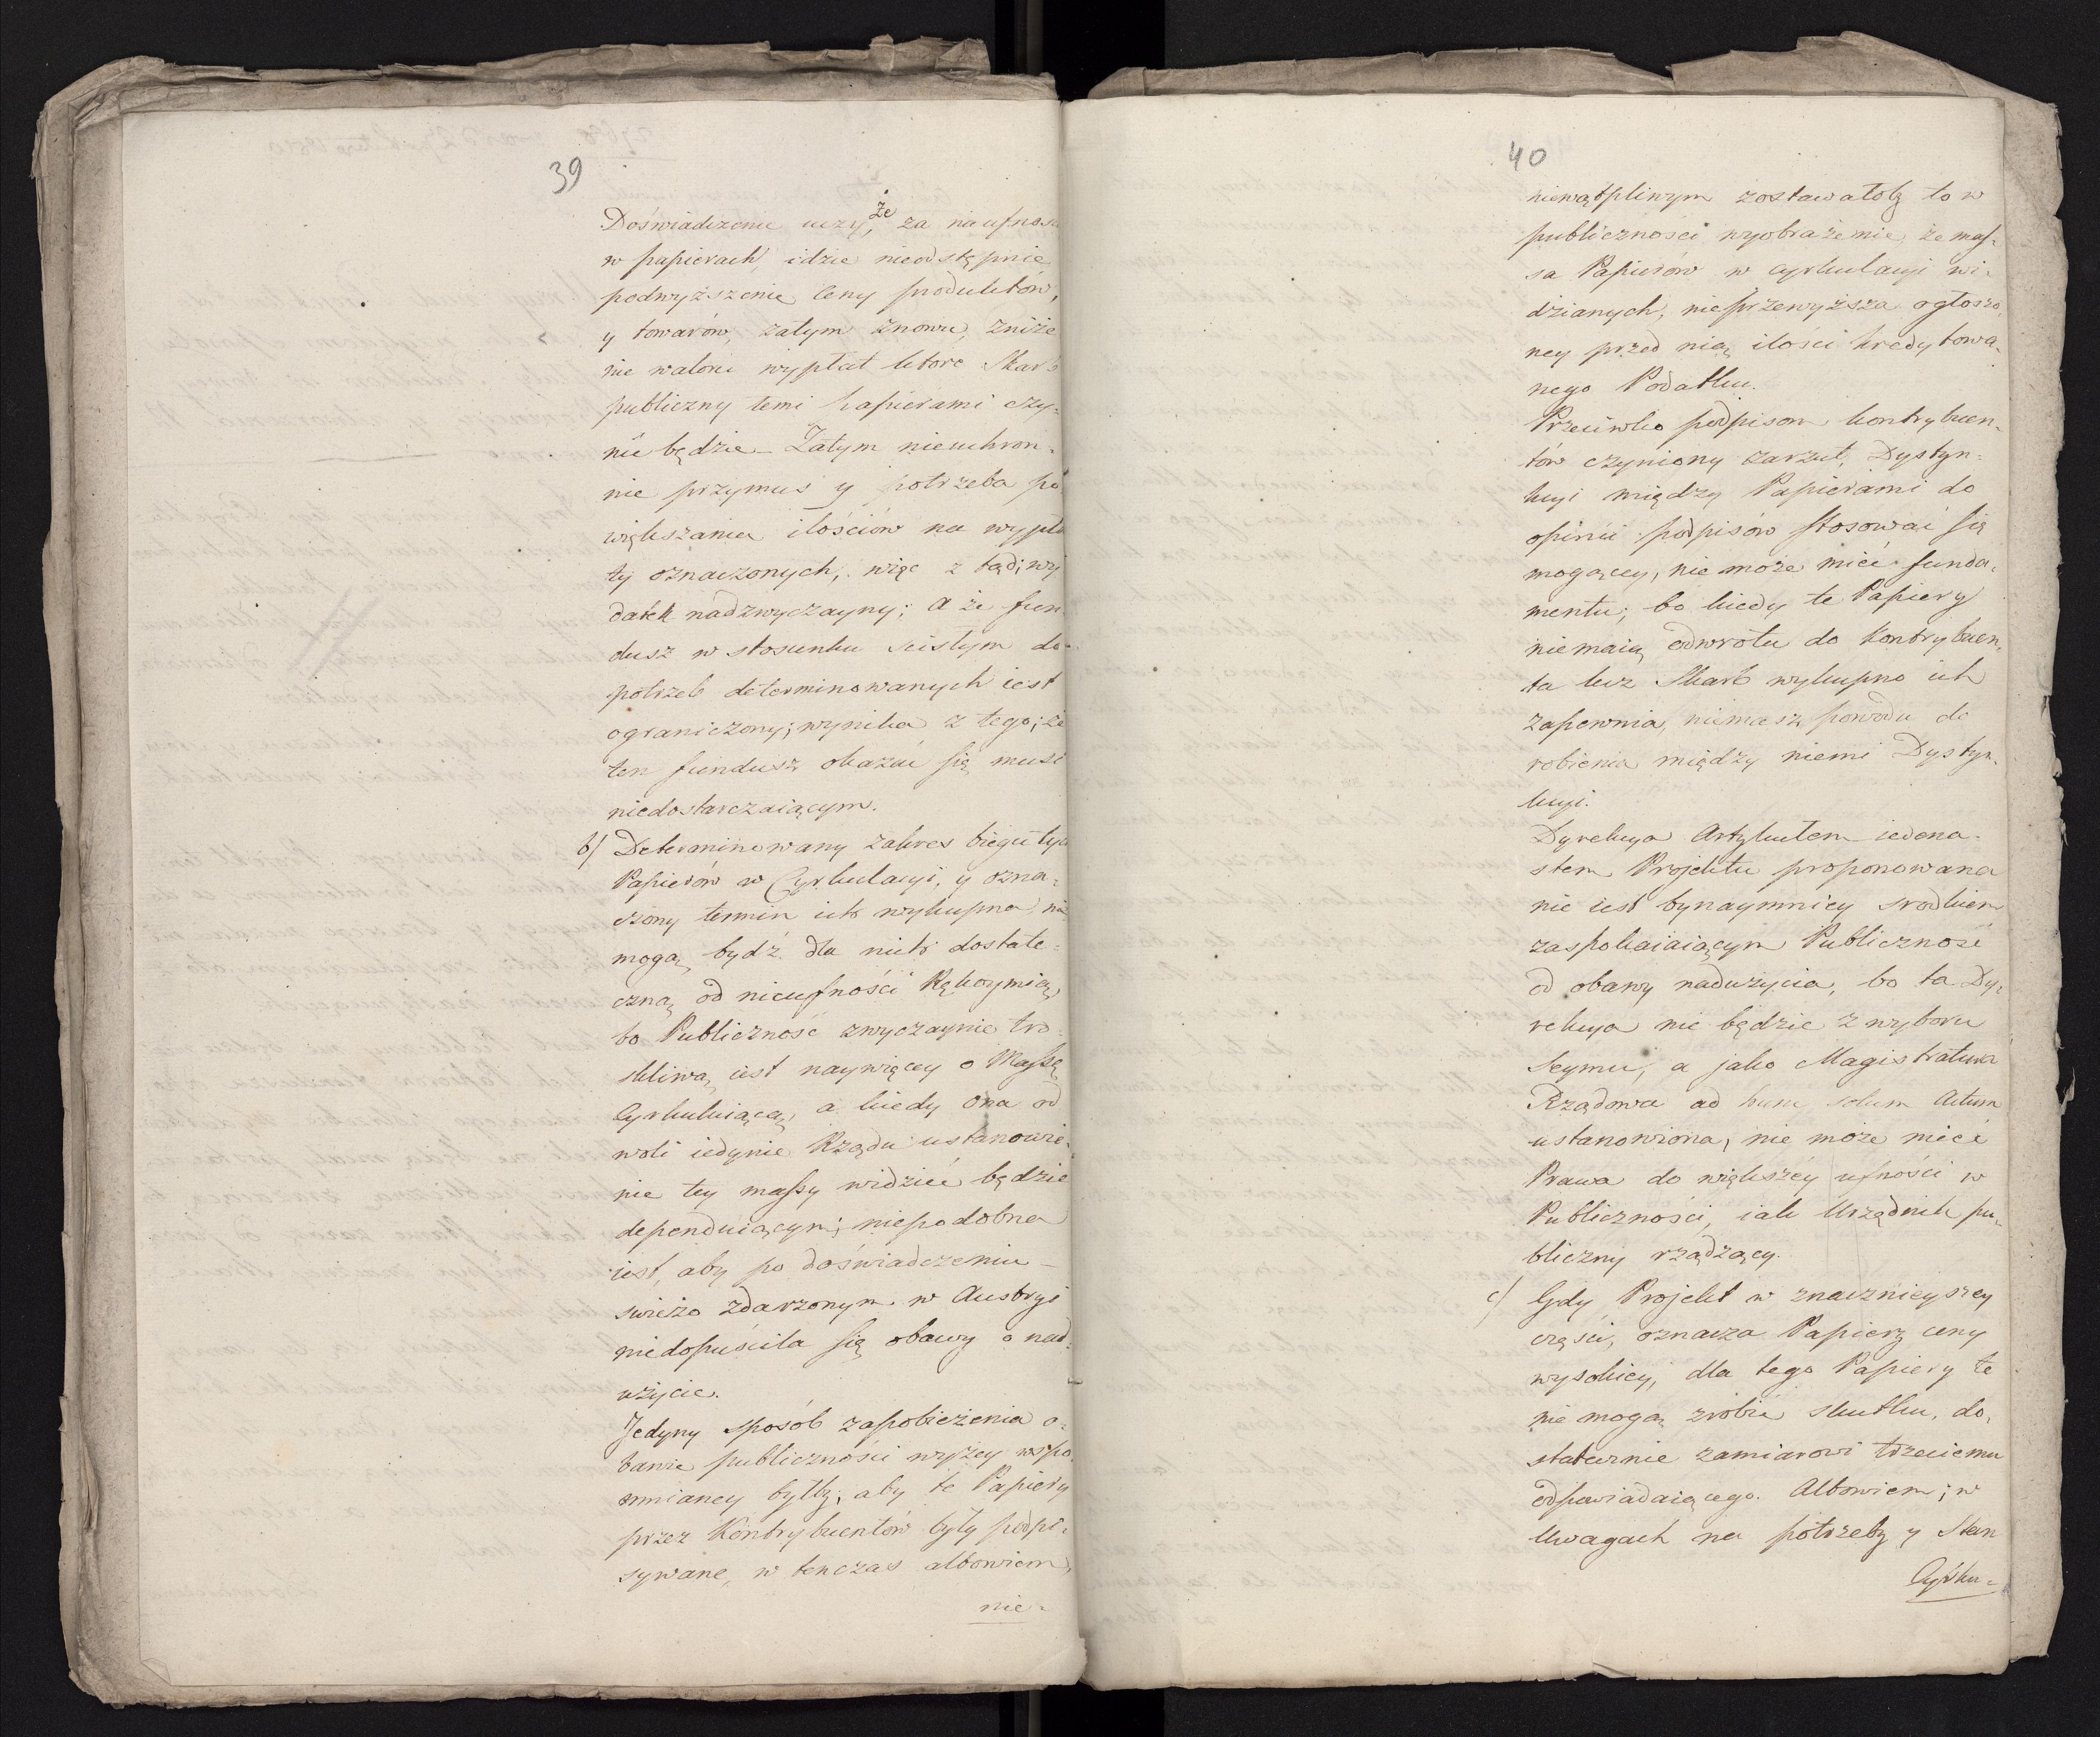 39
Doświadczenie uczy, że za nieufnoś
w papierach idzie nieodstępnie
podwyższenie Ceny produktów,
y towarów, zatym znowu, zniże
nie waloru wypłat które Skarb
publiczny temi papierami czy=
nić będzie – Zatym nieuchron=
nie przymus y potrzeba po
większania ilościów na wypła
ty oznaczonych, więc z tąd; wy
datek nadzwyczayny; A że fun
dusz w stosunku scisłym do
potrzeb determinowanych iest
ograniczony; wynika z tego; że
ten fundusz okazać się musi
niedostarczaiącym.
b/ Determinowany zakres biegu tych
Papierów w Cyrkulacyi, y ozna=
czony termin ich wykupna, nie
mogą bydź dla nich dostate=
czną od nieufności Rękoymią,
bo Publiczność zwyczaynie tro=
skliwą iest naywięcey o Massę
Cyrkuluiącą, a kiedy ona od
woli iedynie Rządu ustanowie=
nie tey massy widzieć będzie
dependuiącym; niepodobna
iest, aby po doświadczeniu –
swieżo zdarzonym w Austryi
niedopuściła się obawy o nad=
użycie.
Jedyny sposób zapobieżenia o=
bawie publiczności wyżey wspo=
mnianey byłby; aby te Papiery
przez Kontrybuentów były podpi=
sywane, w tenczas albowiem,
nie=
40
niewątpliwym zostawałoby to w
publiczności wyobrażenie, że mas=
sa Papierów w cyrkulacyi wi=
dzianych, nieprzewyższa ogłoszo=
ney przed nią ilości kredytowa=
nego Podatku.
Przeciwko podpisom kontrybuen=
tów czyniony zarzut, Dystyn=
kcyi między Papierami do
opinii podpisów stosować się
mogącey, nie może mieć funda=
mentu; bo kiedy te Papiery
niemaią odwrotu do Kontrybuen=
ta lecz Skarb wykupno ich
zapewnia, niemasz powodu do
robienia między niemi Dystyn=
kcyi.
Dyrekcya Artykułem iedena=
stem Projektu proponowana
nie iest bynaymniey srodkiem
zaspokaiaiącym Publiczność
od obawy nadużycia, bo ta Dy=
rekcya nie będzie z wyboru
Seymu, a jako Magistratura
Rządowa ad hunc solum Actum
ustanowiona, nie może mieć
Prawa do większéy ufności w
Publiczności, iak Urzędnik pu=
bliczny rządzący.
c/ Gdy Projekt w znacznieyszey
części, oznacza Papiery ceny
wysokiey, dla tego Papiery te
nie mogą zrobić skutku, do=
statecznie zamiarowi trzeciemu
odpowiadaiącego. Albowiem; w
Uwagach na potrzeby y Stan
Cyrku=